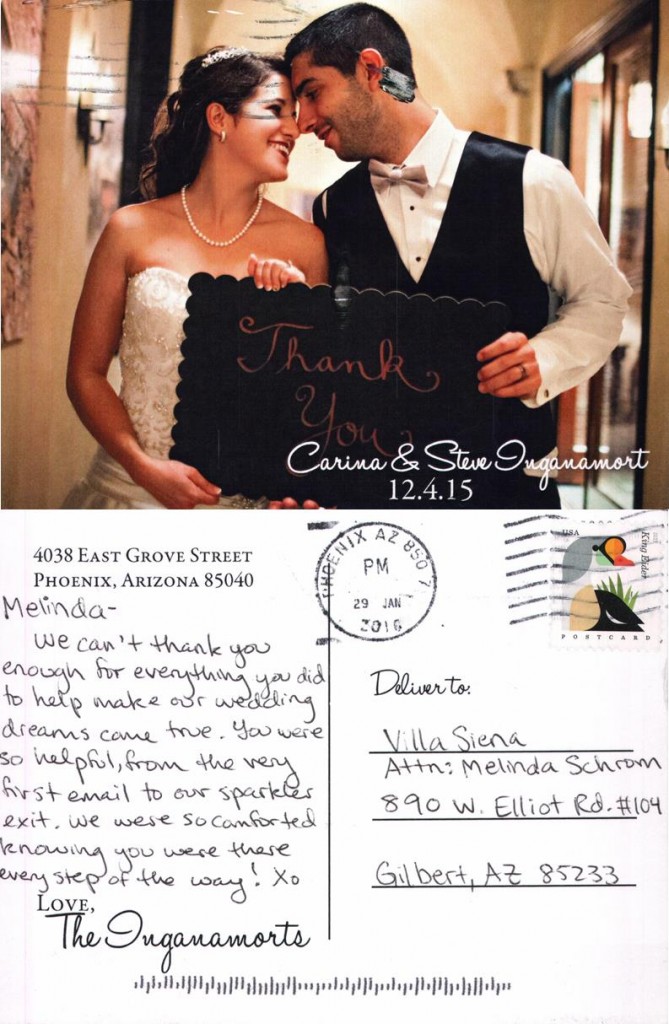 Thank
You
Carina & Steve Inganamort
12.4.15
4038 East Grove Street
Phoenix, Arizona 85040
Melinda-
We can't thank you
enough for everything you did
to help make our wedding
dreams come true. You were
so helpful, from the very
first email to our sparkler
exit. We were so comforted
knowing you were there
every step of the way! Xo
Love,
The Inganamorts
PHOENIX AZ 850 7
PM
29 JAN
2016
USA
King Eider
POSTCARD
Deliver to:
Villa Siena
Attn: Melinda Schrom
890 W. Elliot Rd. #104
Gilbert, AZ 85233